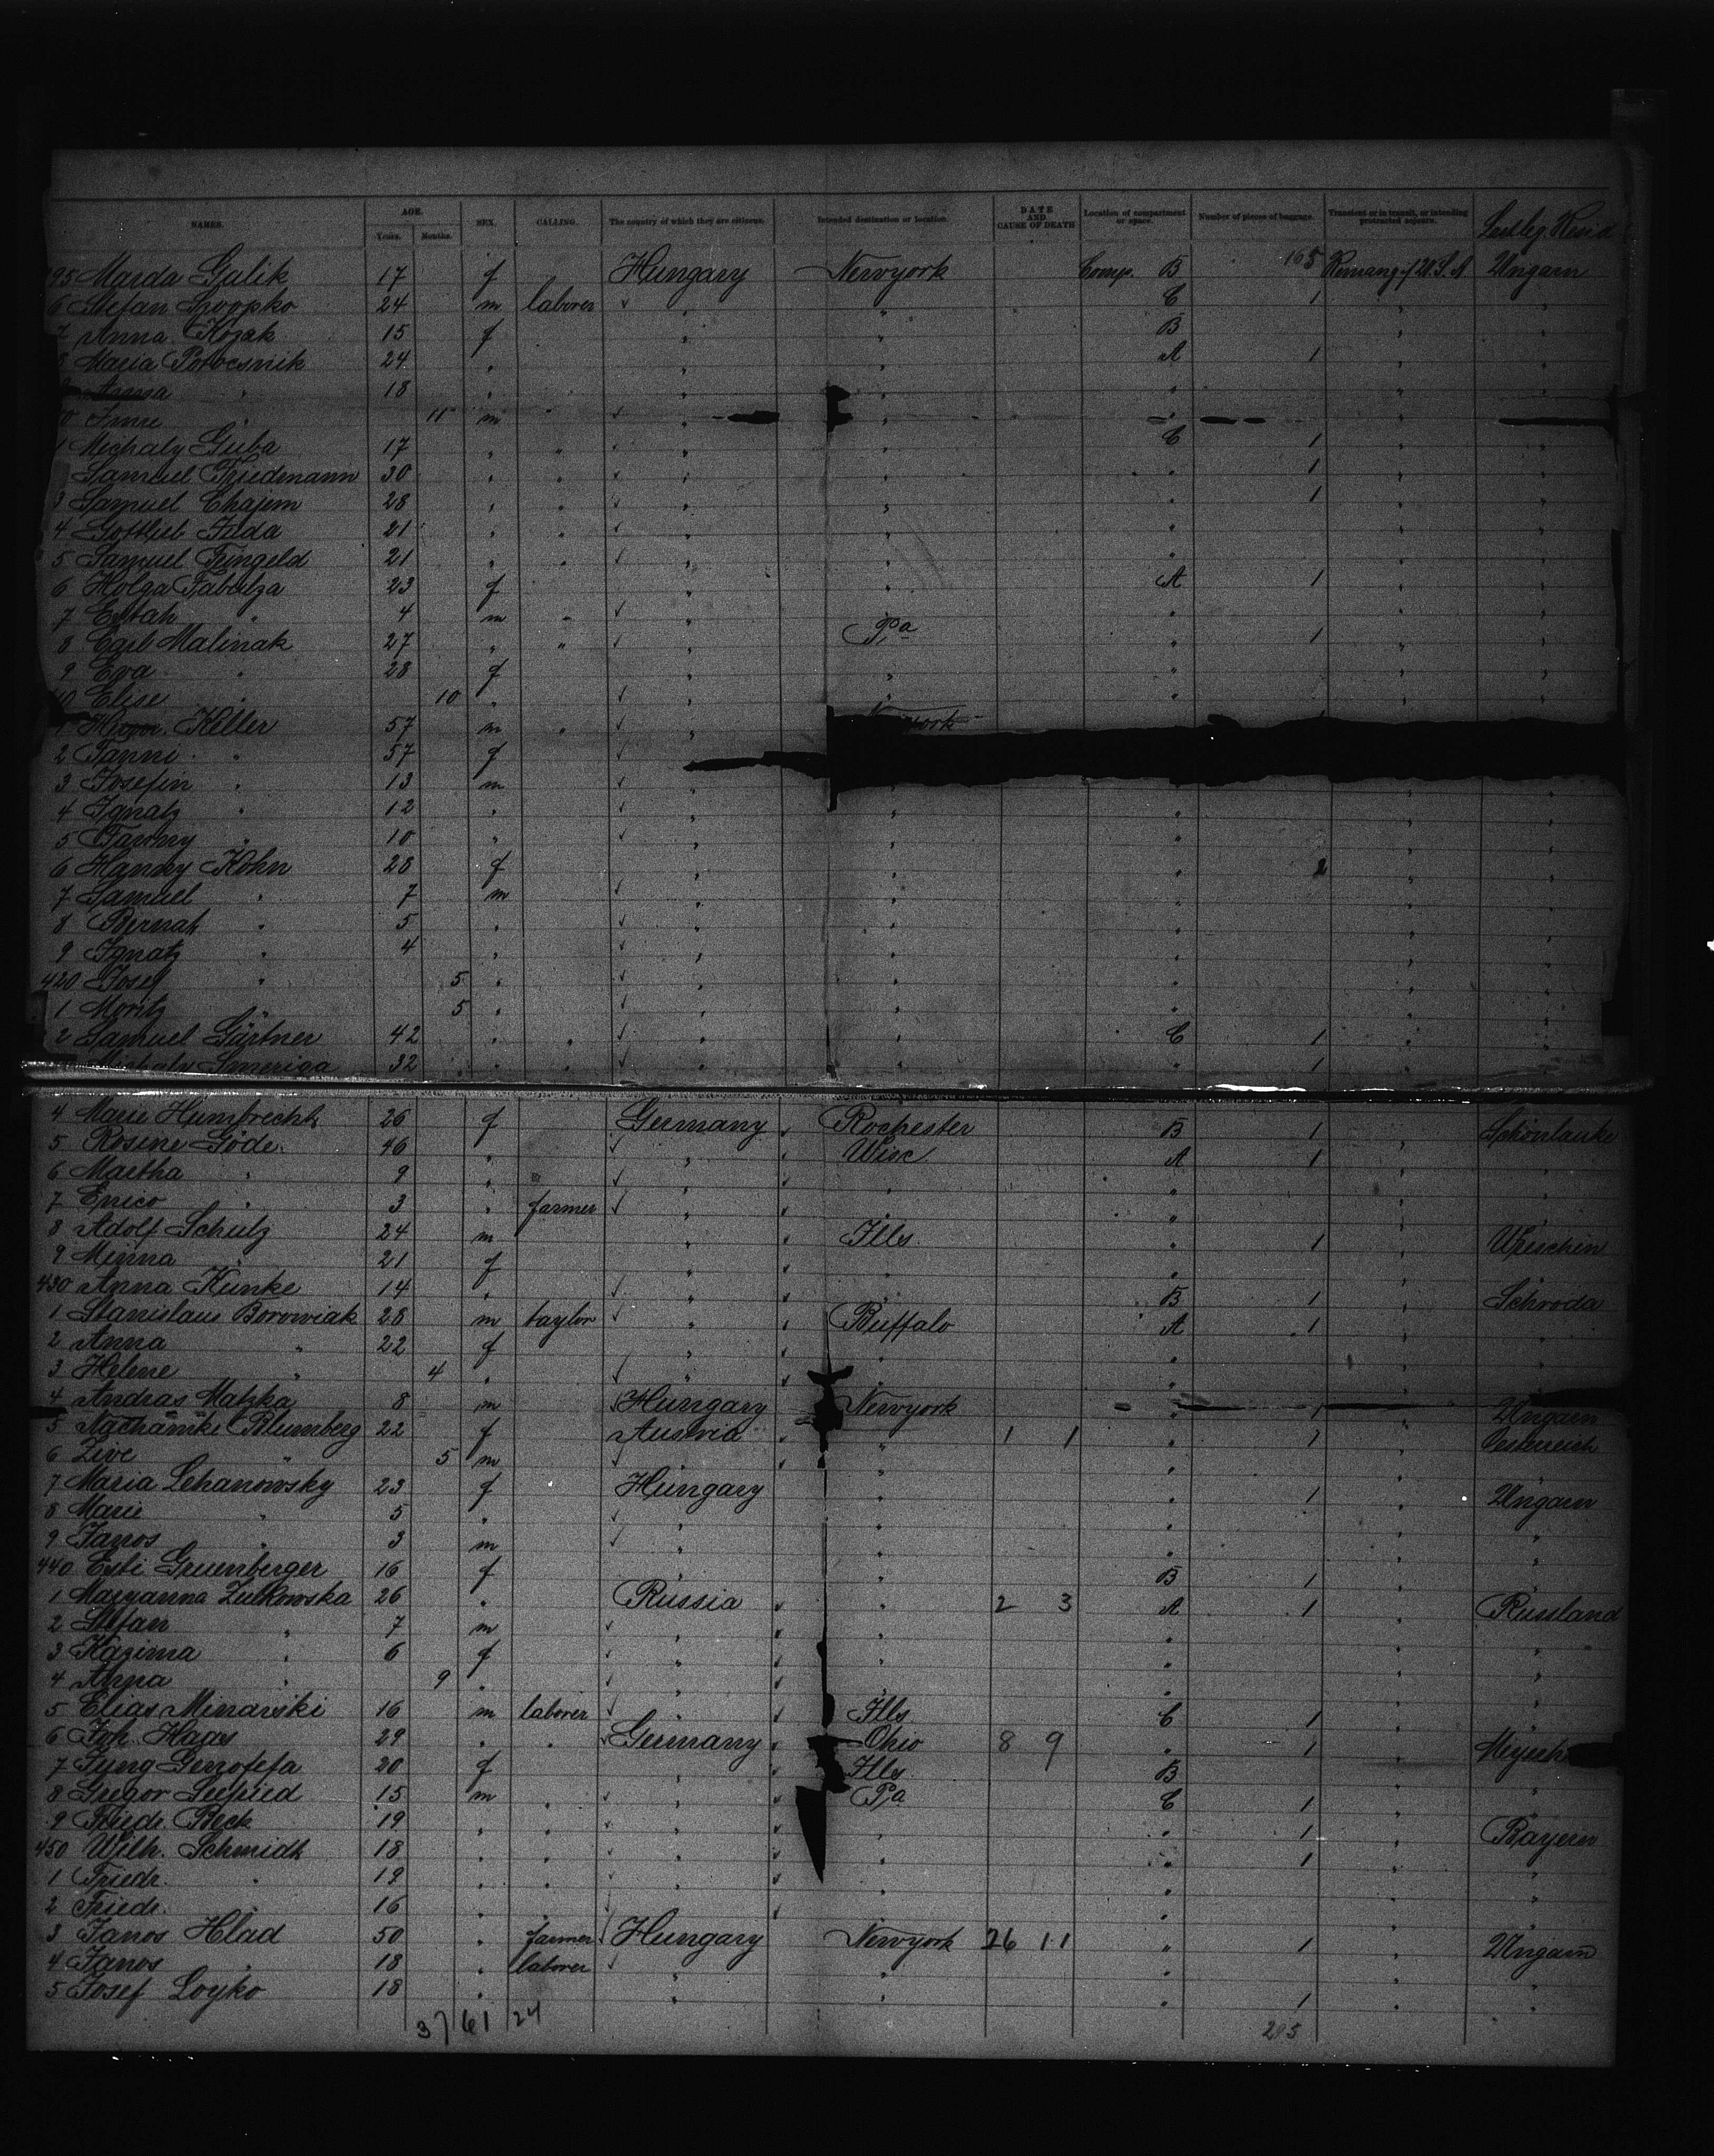 NAMES. AGE. Years. Months. SEX. CALLING. The country of which they are citizens. Intended destination or location. DATE AND CAUSE OF DEATH Location of compartment or space. Number of pieces of baggage. Transient or in transit, or intending protracted sojourn.
95 Marda Gulik 17 f Hungary Newyork Comp. B 165 Ungarn
6 Stefan 24 m laborer C 1
7 Anna Kozak 15 f B
8 Maria Potocsnik 24 A 1
Anna " 18
0 Imre " 11 m
1 Michaly Guba 17 C 1
Samuel Friedmann 30 1
3 Samuel Chajem 28 1
4 Gottlieb Juda 21
5 Samuel Feingeld 21
6 Holga 23 f A 1
7 " 4 m
8 Carl Malinak 27 Pa 1
9 Eva " 28 f
10 Elise " 10
1 Keller 57 m Newyork
2 Fanni " 57 f
3 Josefin " 13 m
4 Ignatz " 12
5 Fanny " 10
6 Hanny Kohn 28 f 2
7 Samuel " 7 m
8 Bernat " 5
9 Ignatz " 4
420 Josef " 5
1 Moritz " 5
2 Samuel Gärtner 42 C 1
Michaly Smeriga 32 1
4 Marie Humbrecht 26 f Germany Rochester B 1 Schönlanke
5 Rosine Göde 46 Wisc. A 1
6 Martha " 9
7 Erico " 3 farmer
8 Adolf Schulz 24 m Ills. 1
9 Minna " 21 f
430 Anna Kunke 14 B 1 Schroda
1 Stanislaus Borowiak 28 m taylor Buffalo A 1
2 Anna " 22 f
3 Helene " 4
4 Andras Matzka 8 m Hungary Newyork 1 Ungarn
5 Blumberg 22 f Austria " 1 1 1 Oesterreich
6 Zive " 5 m
7 Maria Lehanowsky 23 f Hungary 1 Ungarn
8 Marie " 5
9 Janos " 3 m
440 Esti Gruenberger 16 f B 1
1 Maryanna Zulkowska 26 Russia 2 3 A 1 Russland
2 Stefan " 7 m
3 Kazima " 6 f
4 Anna " 9
5 Elias Minarski 16 m laborer Ills C 1
6 Joh. Haas 29 Germany Ohio 8 9 1
7 Jung Genofefa 20 f Ills B
8 Gregor Seefried 15 m Pa C 1
9 Friedr. Beck 19 1 Bayern
450 Wilh. Schmidt 18 1
1 Friedr. " 19
2 Friedr. " 16
3 Janos Hlad 50 farmer Hungary Newyork 26 11 1 Ungarn
4 Janos " 18 laborer
5 Josef Loyko 18 1
37 61 24 205